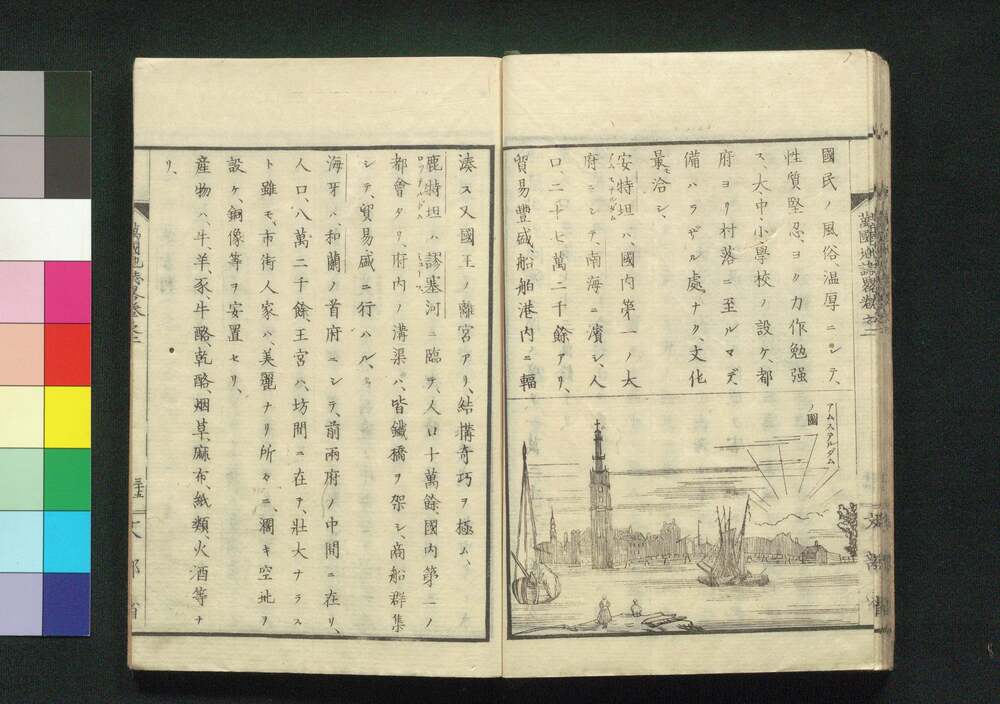 國民ノ風俗、温厚ニシテ、
性質堅忍、ヨク力作勉强
ス、大、中、小、學校ノ設ケ、都
府ヨリ村落ニ至ルマデ、
備ハラザル處ナク、文化
最モ洽シ、
安特坦ハ、國内第一ノ大
アムステルダム
府ニシテ、南海ニ濱シ、人
口、二十七萬二千餘アリ、
貿易豐盛、船舶港内ニ輻
アムステルダム
ノ圖
湊ス又國王ノ離宮アリ、結搆奇巧ヲ極ム、
鹿特坦ハ、謬塞河ニ臨テ、人口十萬餘、國内第一ノ
ロッテルダム
都會タリ、府内ノ溝渠ハ、皆鐵橋ヲ架シ、商船群集
シテ、貿易、盛ニ行ハル、
海牙ハ、和蘭ノ首府ニシテ、前兩府ノ中間ニ在リ、
人口、八萬二千餘、王宮ハ、坊間ニ在テ、壯大ナラス
ト雖モ、市街人家ハ、美麗ナリ所々ニ、濶キ空地ヲ
設ケ、銅像等ヲ安置セリ、
産物ハ、牛、羊、豕、牛酪、乾酪、烟草、麻布、紙類、火酒等ナ
リ、
萬國地誌略卷之二
文部省